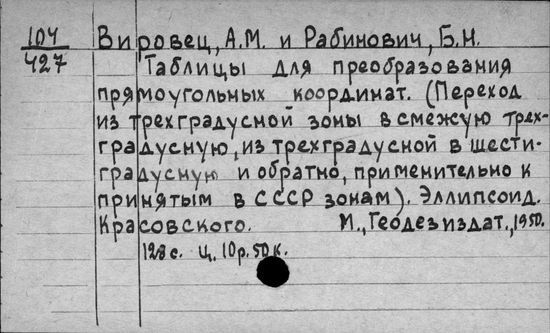 104 Вировец, А.М. и Рабинович, Б.Н.
427 Таблицы для преобразования
прямоугольных координат. (Переход
из трехградусной зоны в смежую трех-
градусную, из трехградусной в шести-
градусную и обратно, применительно к
принятым в СССР зонам). Эллипсоид.
Красовского. М., Геодезиздат., 1950.
128 с. Ц. 10р. 50к.